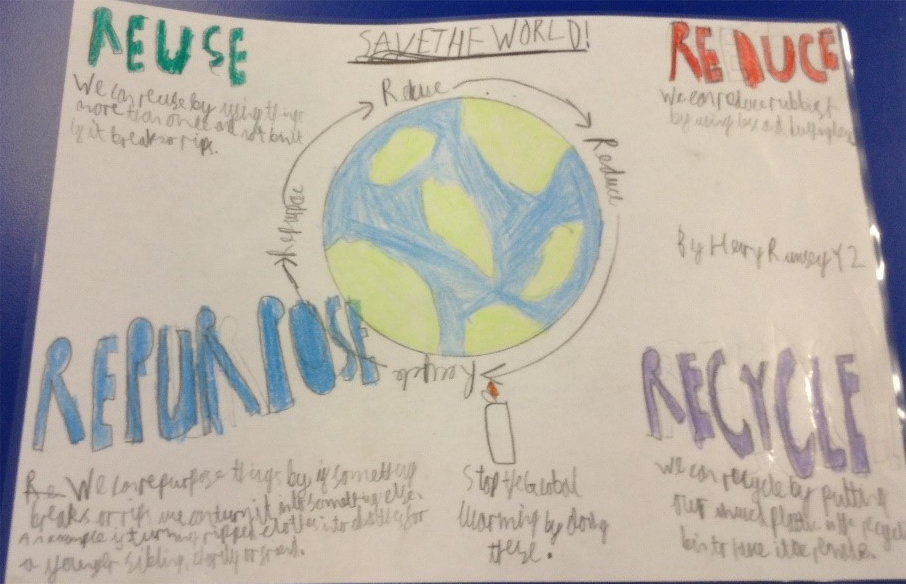 SAVE THE WORLD!
REUSE
We can reuse by using things
more than once and not bin it
if it breaks or rips.
REDUCE
We can reduce rubbish
by using less and
By Henry Rumsey Y2
Reuse
Reduce
Recycle
Repurpose
REPURPOSE
We can repurpose things by if something
breaks or rips we can turn it into something else.
An example is turning ripped clothes into clothes for
a younger sibling, charity or
Stop the Global
Warming by doing
these.
RECYCLE
We can recycle by putting
our plastic in the recycling
bin to